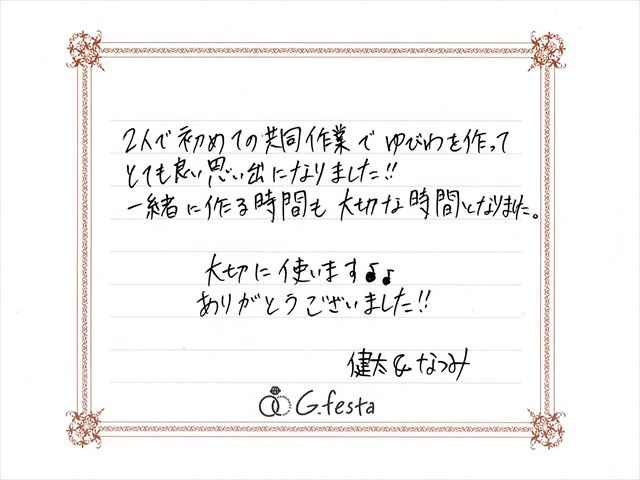 2人で初めての共同作業でゆびわを作って
とても良い思い出になりました!!
一緒に作る時間も大切な時間となりました。
大切に使います♪♪
ありがとうございました!!
健太&なつみ
G.festa